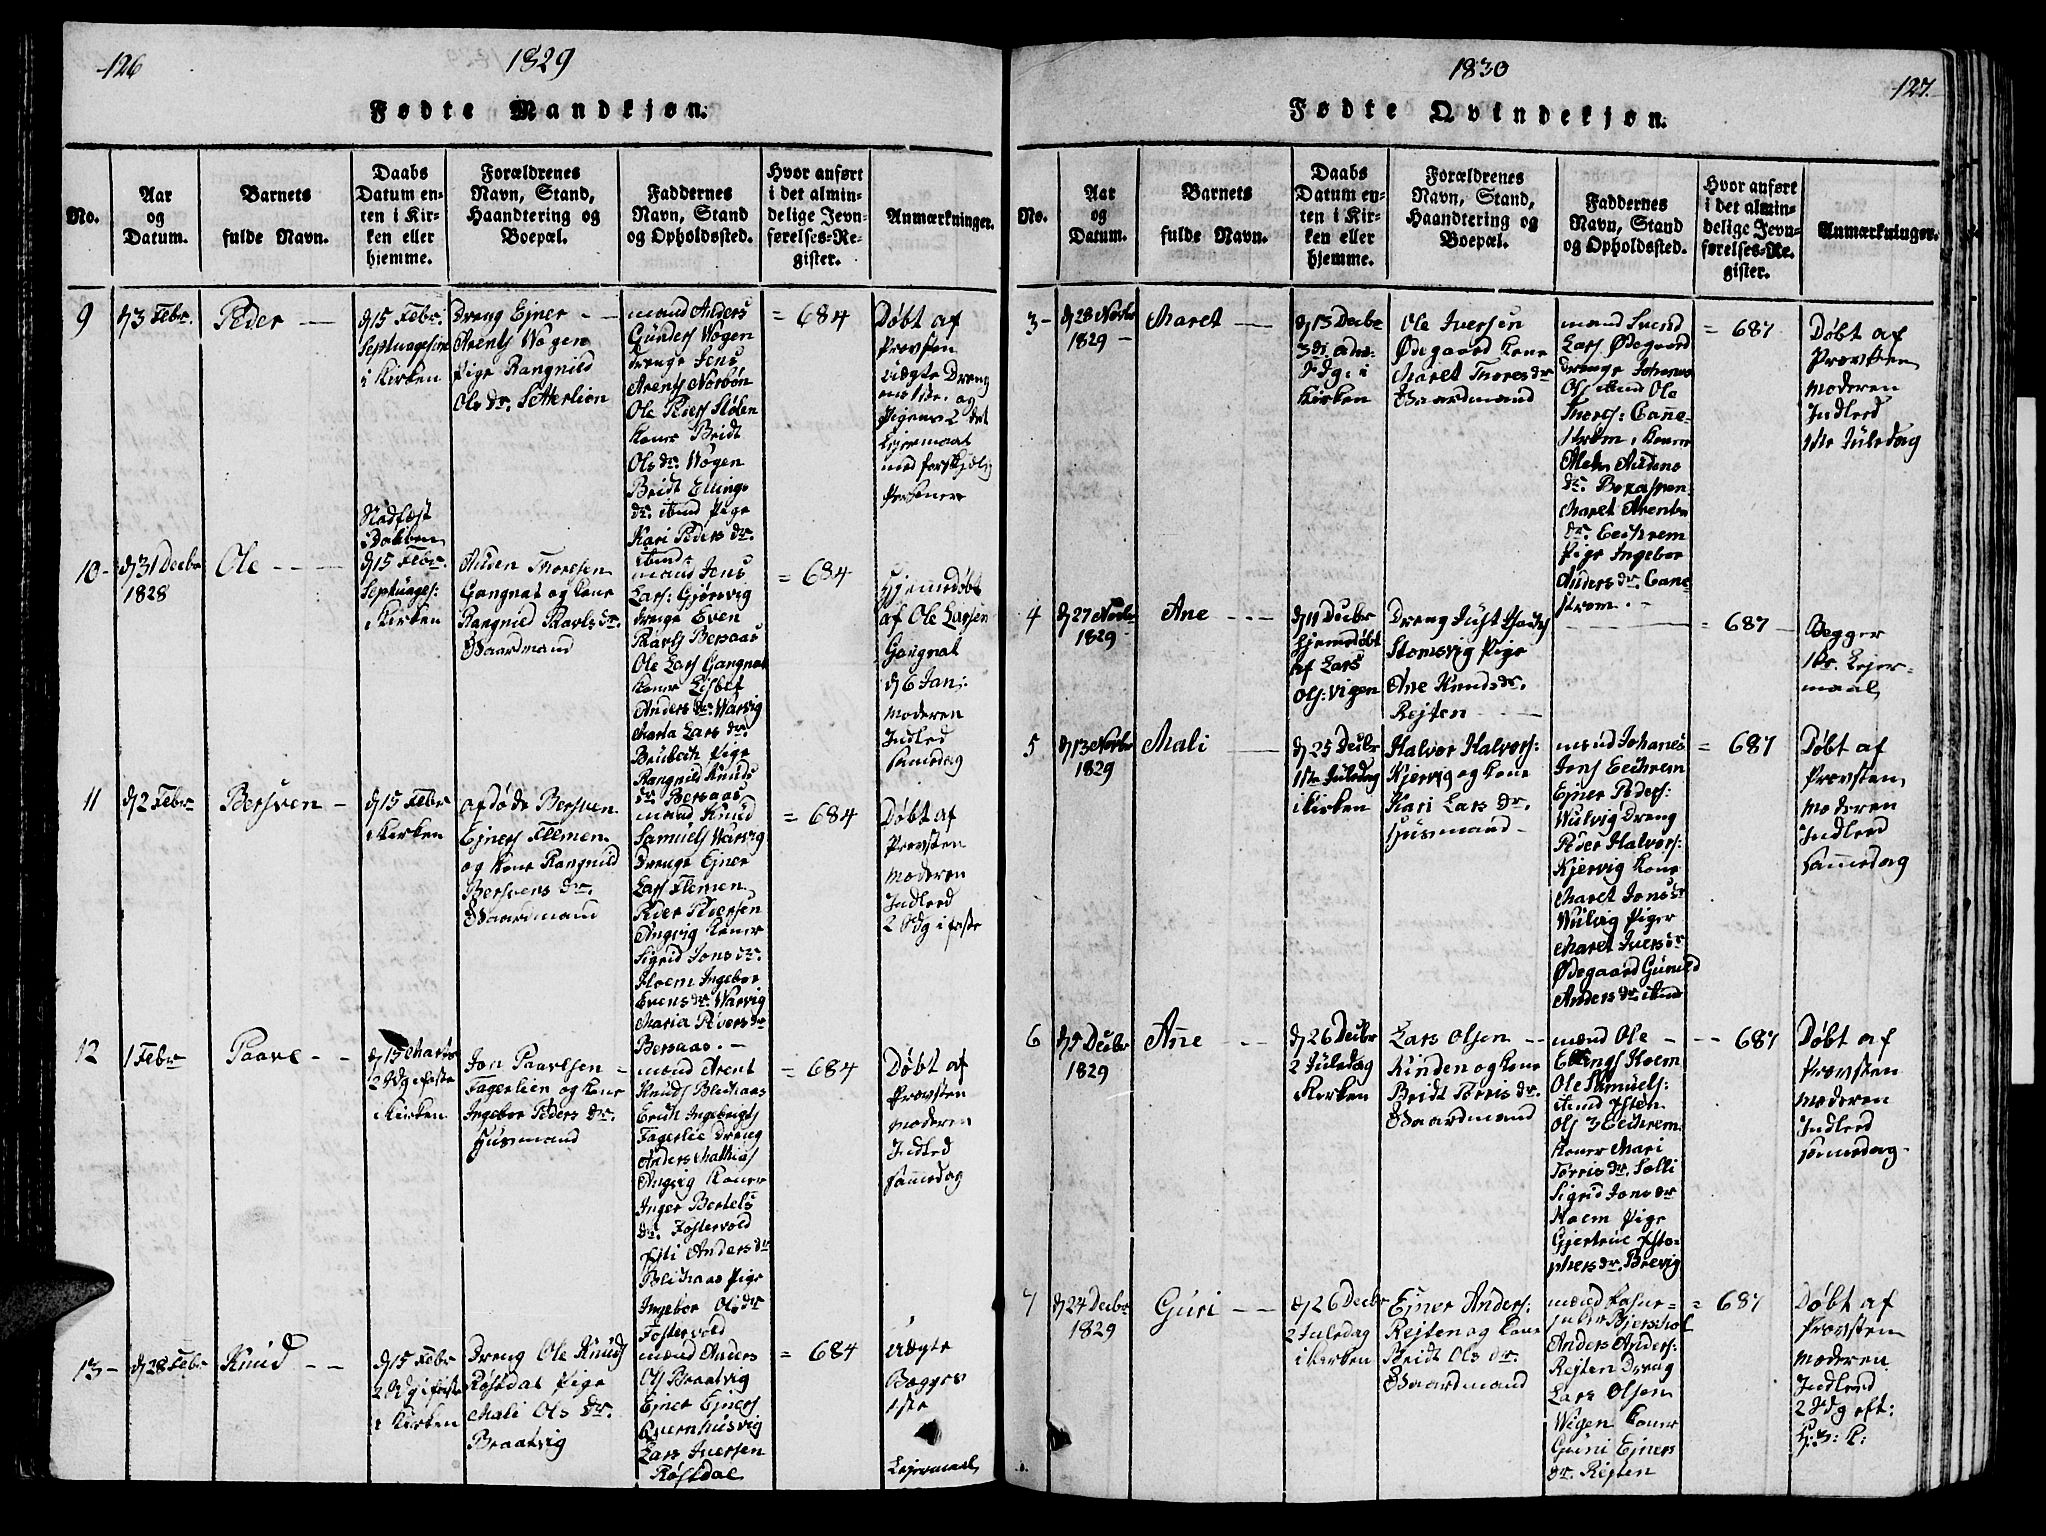 126
1829
Fødte Mandkjøn.
No.
Aar
og
Datum.
Barnets
fulde Navn.
Daabs
Datum en-
ten i Kir-
ken eller
hjemme.
Forældrenes
Navn, Stand,
Haandtering og
Boepæl.
Faddernes
Navn, Stand
og Opholdssted.
Hvor anført
i det almin-
delige Jevn-
førelses-Re-
gister.
Anmærkninger.
9
d 3 Febr.
Peder
d 15 Febr.
i Kirken
Dreng Ejner
Arents Wogen
Pige Rangnild
Ols dr. Setterlien
mand Anders
Gunders Wogen
Drenge Jens
Ole Peders
Koner Bridt
Ols dr. Wogen
Bridt Ellings
dr. ibid Pige
Kari Peders dr.
ibid
= 684
Døbt af
Provsten
og
det
Lejermaal
Nødføst
10
d 31 Decbr
1828
Ole
d 15 Febr.
i Kirken
Auden Thoresen
Gangnat og Kone
Rangnild Paavels dr.
Gaardmand
mand Jens
Lars:
Drenge Even
Paavels Bersaas
Ole Lars Gangnat
Koner Lisbet
Anders dr. Warvig
Maria Lars dr.
Pige
Rangnild Knuds
dr. Bersaas
= 684
Hjemmedøbt
af Ole Larsen
Gangnat
d 6 Jan:
moderen
Indled
samedag
11
d 2 Febr
Bersven
d 15 Febr
i Kirken
afdøde Bersven
Ejners Flemen
og Kone Rangnild
Bersvens dr.
Gaardmand
mand Knud
Samuels Warvig
Drenge Ejner
Lars Flemen
Peder Pedersen
Angvig Koner
Sigrid Jons dr.
Hoem Ingebor
Evens dr. Warvig
Maria Peders dr
Bersaas.
= 684
Døbt af
Provsten
moderen
Indled
2 Sdg i faste
12
1 Febr
Paave
d 15 Marts
2 Sdg i faste
i Kirken
Jon Paavelsen
Fagerlien og Kone
Ingebor Peders dr.
Husmand
mand Arent
Knuds Blikaas
Erich Ingebrigts
Fagerlie Dreng
Anders Mathias
Angvig Koner
Inger Bertels
dr. Fostervold
Anders dr
Blikaas Pige
Ingebor Ols dr
Fostervold
= 684
Døbt af
Provsten
moderen
Indled
samedag
13
d 28 Febr
Knud
d 15 Febr
2 Sdg i faste
i Kirken
Dreng Ole Knuds
Røstdal Pige
Mali Ols dr.
Braatvig
mænd Anders
Ols Braatvig
Ejner Ejners
Qvernhusvig
Lars Iversen
Røstdal
= 684
uægte
Begges
1ste
Lejermaal
1830
127.
Fødte Qvindekjøn.
No.
Aar
og
Datum.
Barnets
fulde Navn.
Daabs
Datum en-
ten i Kir-
ken eller
hjemme.
Forældrenes
Navn, Stand,
Haandtering og
Boepæl.
Faddernes
Navn, Stand
og Opholdssted.
Hvor anført
i det almin-
delige Jevn-
førelses-Re-
gister.
Anmærkninger.
3
d 28 Novbr
1829
Maret
d 13 Decbr
3 S: adv:
Sdg: i
Kirken
Ole Iversen
Ødegaard Kone
Maret Thores dr
Gaardmand
mand Svend
Lars Ødegaard
Drenge Johannes
Ols ibid Ole
Thores:
Koner
Audens
dr.
Maret Arents
dr. Eeikrem
Pige Ingebor
Anders dr.
= 687
Døbt af
Provsten
moderen
Indled
1ste Juledag
4
d 27 Novbr
1829
Ane
d 11 Decbr
hjemmedøbt
af Lars
Ols: Vigen
Dreng Just
Stomsvig Pige
Ane Knuds dr.
Rejten
= 687
Begges
1ste Lejer-
maal
5
d 13 Novbr
1829
Mali
d 25 Decbr
1ste Juledag
i Kirken
Halvor Halvors:
Kjørvig og Kone
Kari Lars dr.
Husmand
mænd Johanes
Jons Eeikrem
Ejner Peders:
Wulvig Dreng
Peder Halvors:
Kjørvig Kone
Maret Jons dr
Wulvig Piger
Maret Ivers dr
Ødegaard Gunild
Anders dr. ibid
= 687
Døbt af
Provsten
moderen
Indled
samedag
6
d 5 Decbr
1829
Ane
d 26 Decbr
2 Juledag
i Kirken
Lars Olsen
Rinden og Kone
Bridt Torris dr.
Gaardmand
mænd Ole
Ellings Hoem
Ole Samuels:
ibid
Ols Eeikrem
Koner Mari
Torris dr. Solli
Sigrid Jons dr
Hoem Pige
Gjertrue
dr. Brevig
687
Døbt af
Provsten
moderen
Indled
samedag
7
d 24 Decbr
1829
Guri
d 26 Decbr
2 Juledag
i Kirken
Ejner Anders:
Rejten og Kone
Bridt Ols dr.
Gaardmand
mænd
Anders Anders:
Rejten Dreng
Lars Olsen
Wigen Koner
Guni Ejners
dr. Rejten
= 687
Døbt af
Provsten
moderen
Indled
2 Sdg eft:
H: 3: K: